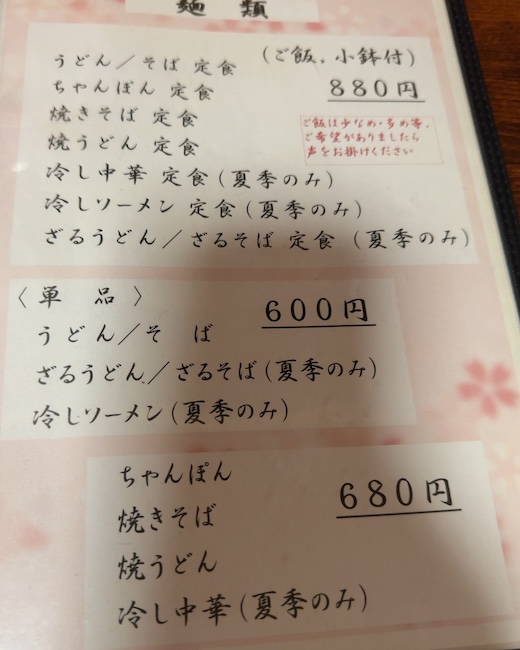 麺 類
うどん／そば 定食 (ご飯、小鉢付)
ちゃんぽん 定食 880円
焼きそば 定食
焼うどん 定食
ご飯は少なめ・多め等、
ご希望がありましたら
声をお掛けください
冷し中華 定食 (夏季のみ)
冷しソーメン 定食 (夏季のみ)
ざるうどん／ざるそば 定食 (夏季のみ)
〈 単 品 〉 600円
うどん／そ ば
ざるうどん／ざるそば (夏季のみ)
冷しソーメン (夏季のみ)
ちゃんぽん
焼きそば 680円
焼うどん
冷し中華 (夏季のみ)